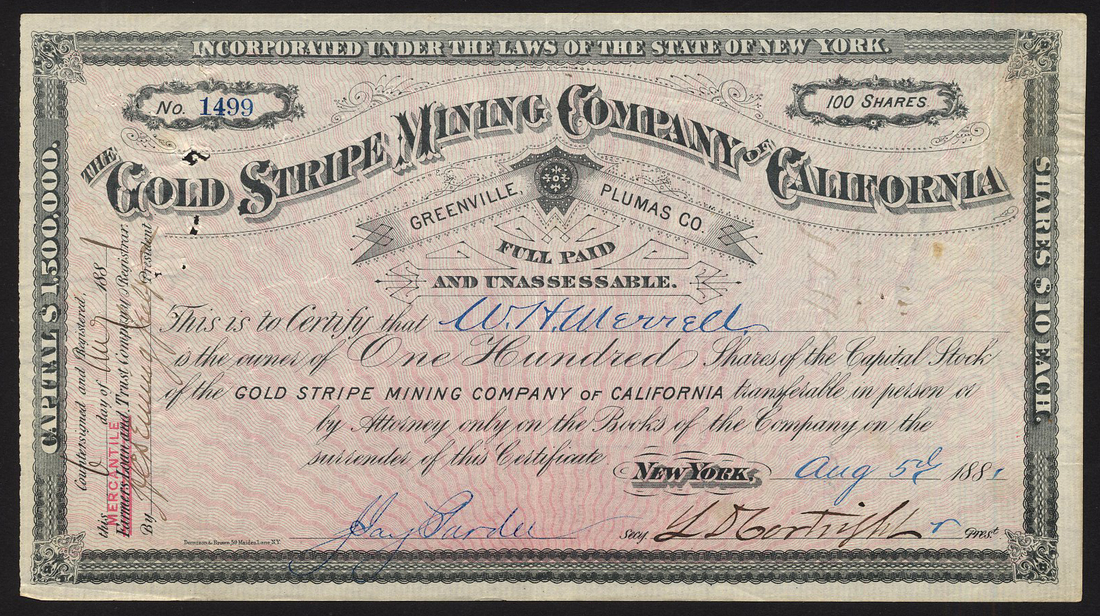 INCORPORATED UNDER THE LAWS OF THE STATE OF NEW YORK.
No. 1499
100 SHARES
THE GOLD STRIPE MINING COMPANY OF CALIFORNIA
GREENVILLE, PLUMAS CO.
FULL PAID
AND UNASSESSABLE.
This is to Certify that W. H. Merrell
is the owner of One Hundred Shares of the Capital Stock
of the GOLD STRIPE MINING COMPANY OF CALIFORNIA transferable in person or
by Attorney only on the Books of the Company on the
surrender of this Certificate
NEW YORK, Aug 5th 1881
Jay Pardee Secy. L D Cortright Prest.
Dennison & Brown, Maiden Lane N.Y.
CAPITAL $1,500,000.
SHARES $10 EACH.
Countersigned and Registered,
this day of 188
MERCANTILE
Farmers Loan and Trust Company Registrar.
By President